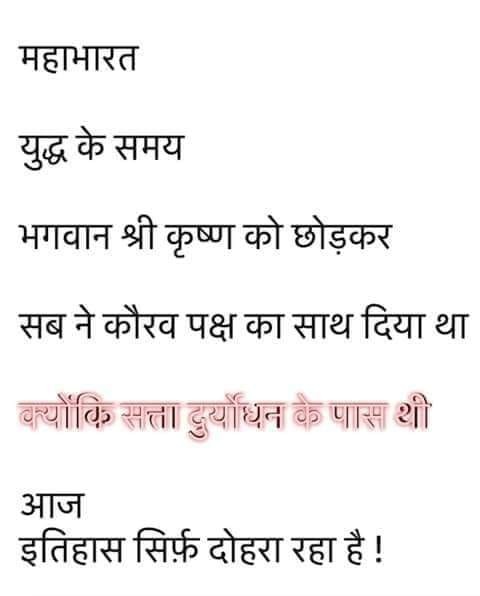 महाभारत
युद्ध के समय
भगवान श्री कृष्ण को छोड़कर
सब ने कौरव पक्ष का साथ दिया था
क्योंकि सत्ता दुर्योधन के पास थी
आज
इतिहास सिर्फ़ दोहरा रहा है !